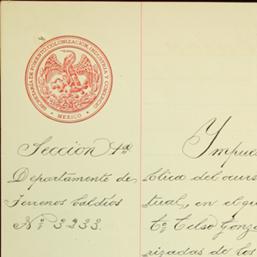 SECRETARIA DE FOMENTO, COLONIZACION, INDUSTRIA Y COMERCIO
MEXICO
Seccion 1ª
Departamento de
Terrenos Baldíos
Nº 3233.
Impu
blica del curs
tual, en el qu
Cº Celso Gonzá
rizadas de los